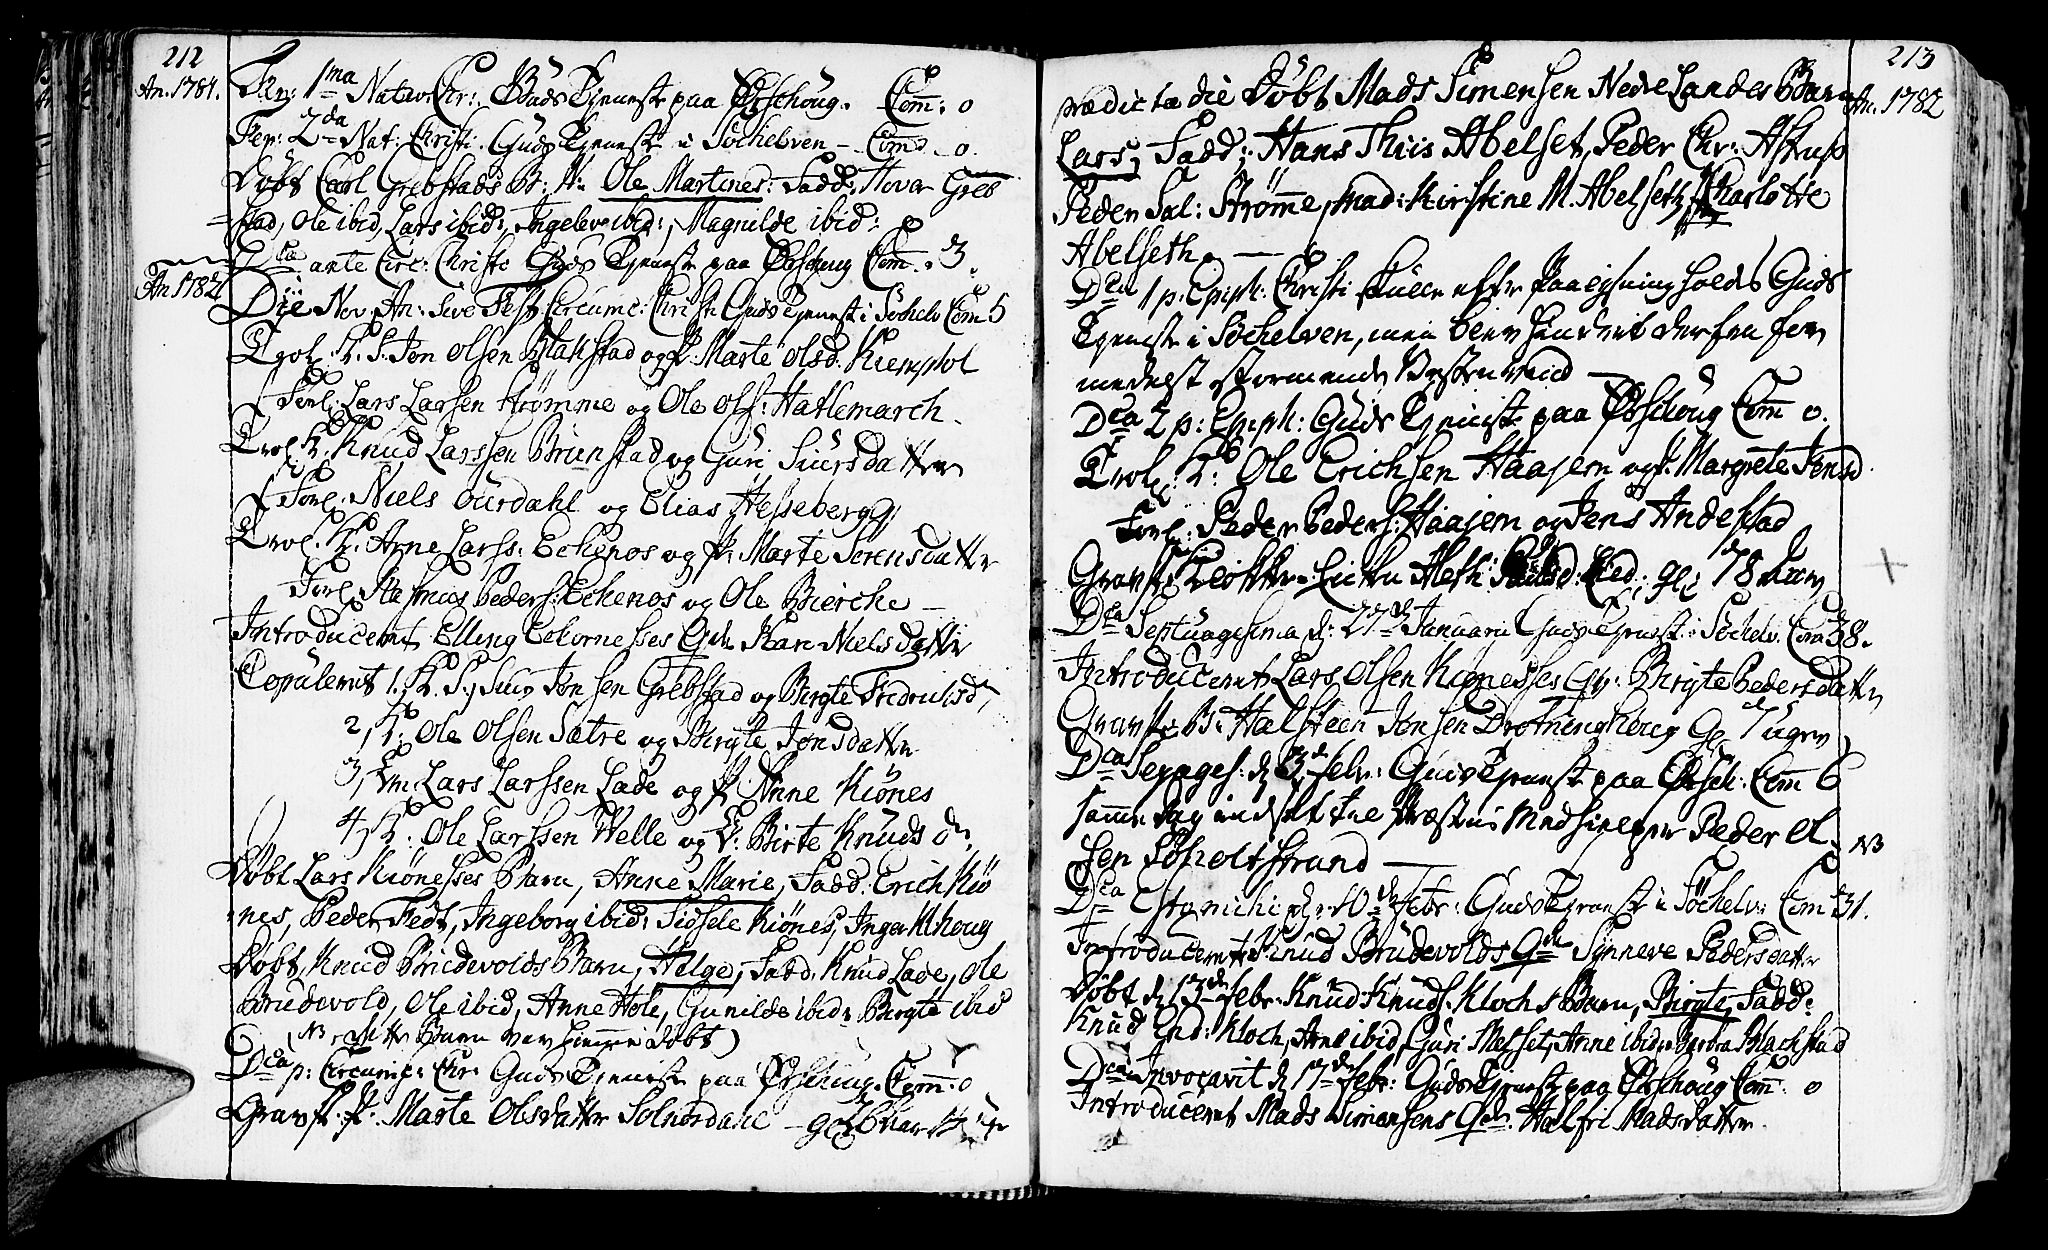 212
An. 1781.
Fer: 1ma Nativ: Chr: Guds Tjeneste paa Ørschoug. Com: 0
Fer: 2da Nat: Christi Guds Tjeneste i Søchelven - Com: 0.
Døbt Carl Grebstads B: Ole Martines: Fadd: Iver Greb
=stad, Ole ibid, Lars ibid:, Ingelev ibid:, Magnilde ibid:
Dca ante Circ: Christi Guds Tjeneste paa Ørschoug Com: 3.
An 1782
Die Nov: An: sive Fest. Circumc: Christi Guds Tjeneste i Søchelv Com 5
Trol: K. S. Jon Olsen Blakstad og P. Marte Olsd: Kiemphol
Forl: Lars Larsen Strømme og Ole Ols: Hatlemarch.
Trol. K. Knud Larssen Brunstad og Guri Siursdatter
Forl: Niels Ourdahl og Elias Hesseberg
Trol. K. Arne Larss: Echenos og P: Marte Sørensdatter
Forl: Rasmus Peders: Echenos og Ole Bierche
Introduceret Elling Echornesses Qde Kari Nielsdatter
Copuleret 1. K. S. Jens Jensen Grebstad og Birgte Fredrichsdr
2, K: Ole Olsen Sætre og Birgte Jonsdatter
3, Em: Lars Larssen Lade og P. Anne Kiønes
4, K: Ole Larssen Welle og E: Birte Knudsdr
Døbt Lars Kiønesses Barn, Anne Marie, Fadd: Erich Kiø
=nes, Peder Fedt, Ingeborg ibid: Sidsele Kiønes, Inger Khoug
Døbt, Knud Brudevolds Barn, Helge, Fadd. Knud Lade, Ole
Brudevold, Ole ibid, Anne Hole, Gunilde ibid: Birgte ibid
(NB dette Barn var hiemme døbt)
Dca p: Circumc: Chr: Guds Tjeneste paa Ørschoug. Com: 0
Gravf. P. Marte Olsdatter Solnørdahl
213
An. 1782
prædicta die Døbt Mads Simensen Nedre Landes Barn
Lars, Fadd: Hans Thiis Abelset, Peder Chr: Astrup
Peder Sal: Strømme, mad: Kirstine M. Abelseth, Charlotte
Abelseth. —
Dca 1 p: Epiph: Christi skulle efter paalysning holdes Guds
Tjeneste i Søchelven, men blev hindret derfra for
medelst stormende Vesten vind —
Dca 2 p: Epiph: Guds Tjeneste paa Ørschoug Com 0.
Trol: K: Ole Erichsen Haajem og P. Margrete Jensd.
Forl: Peder Peders: Haajem og Jens Andestad
Gravf: Klokker-Enken gl: 78 Aar
Dca Septuagesima d: 27de Januarii Guds Tjenest i Søchelv: Com 38.
Introduceret Lars Olsen Kiønesses Qv: Birgte Pedersdatter
Gravf: B: Halsteen Jonsen Drotninghoug Gl 7 uger
Dca Sexages: d 3de Febr: Guds Tjeneste paa Ørsch: Com 6
samme dag indsat til Præstens Medhielper Peder Ol=
sen Søholtstrand —
NB
Dca Esto mihi d: 10de Febr: Guds Tjeneste i Søchelv: Com 31.
Introduceret Knud Brudevolds Qde Synneve Pedersdatter
Døbt d 13de Febr: Knud Knuds: Klochs Barn, Birgte, Fadd:
Knud End: Kloch, Arne ibid, Guri Melset, Anne ibid: Berta Blachstad
Dca Invocavit d 17de Febr: Guds Tjeneste paa Ørschoug Com: 0
Introduceret Mads Simensens Qde: Halfri Madsdatter.